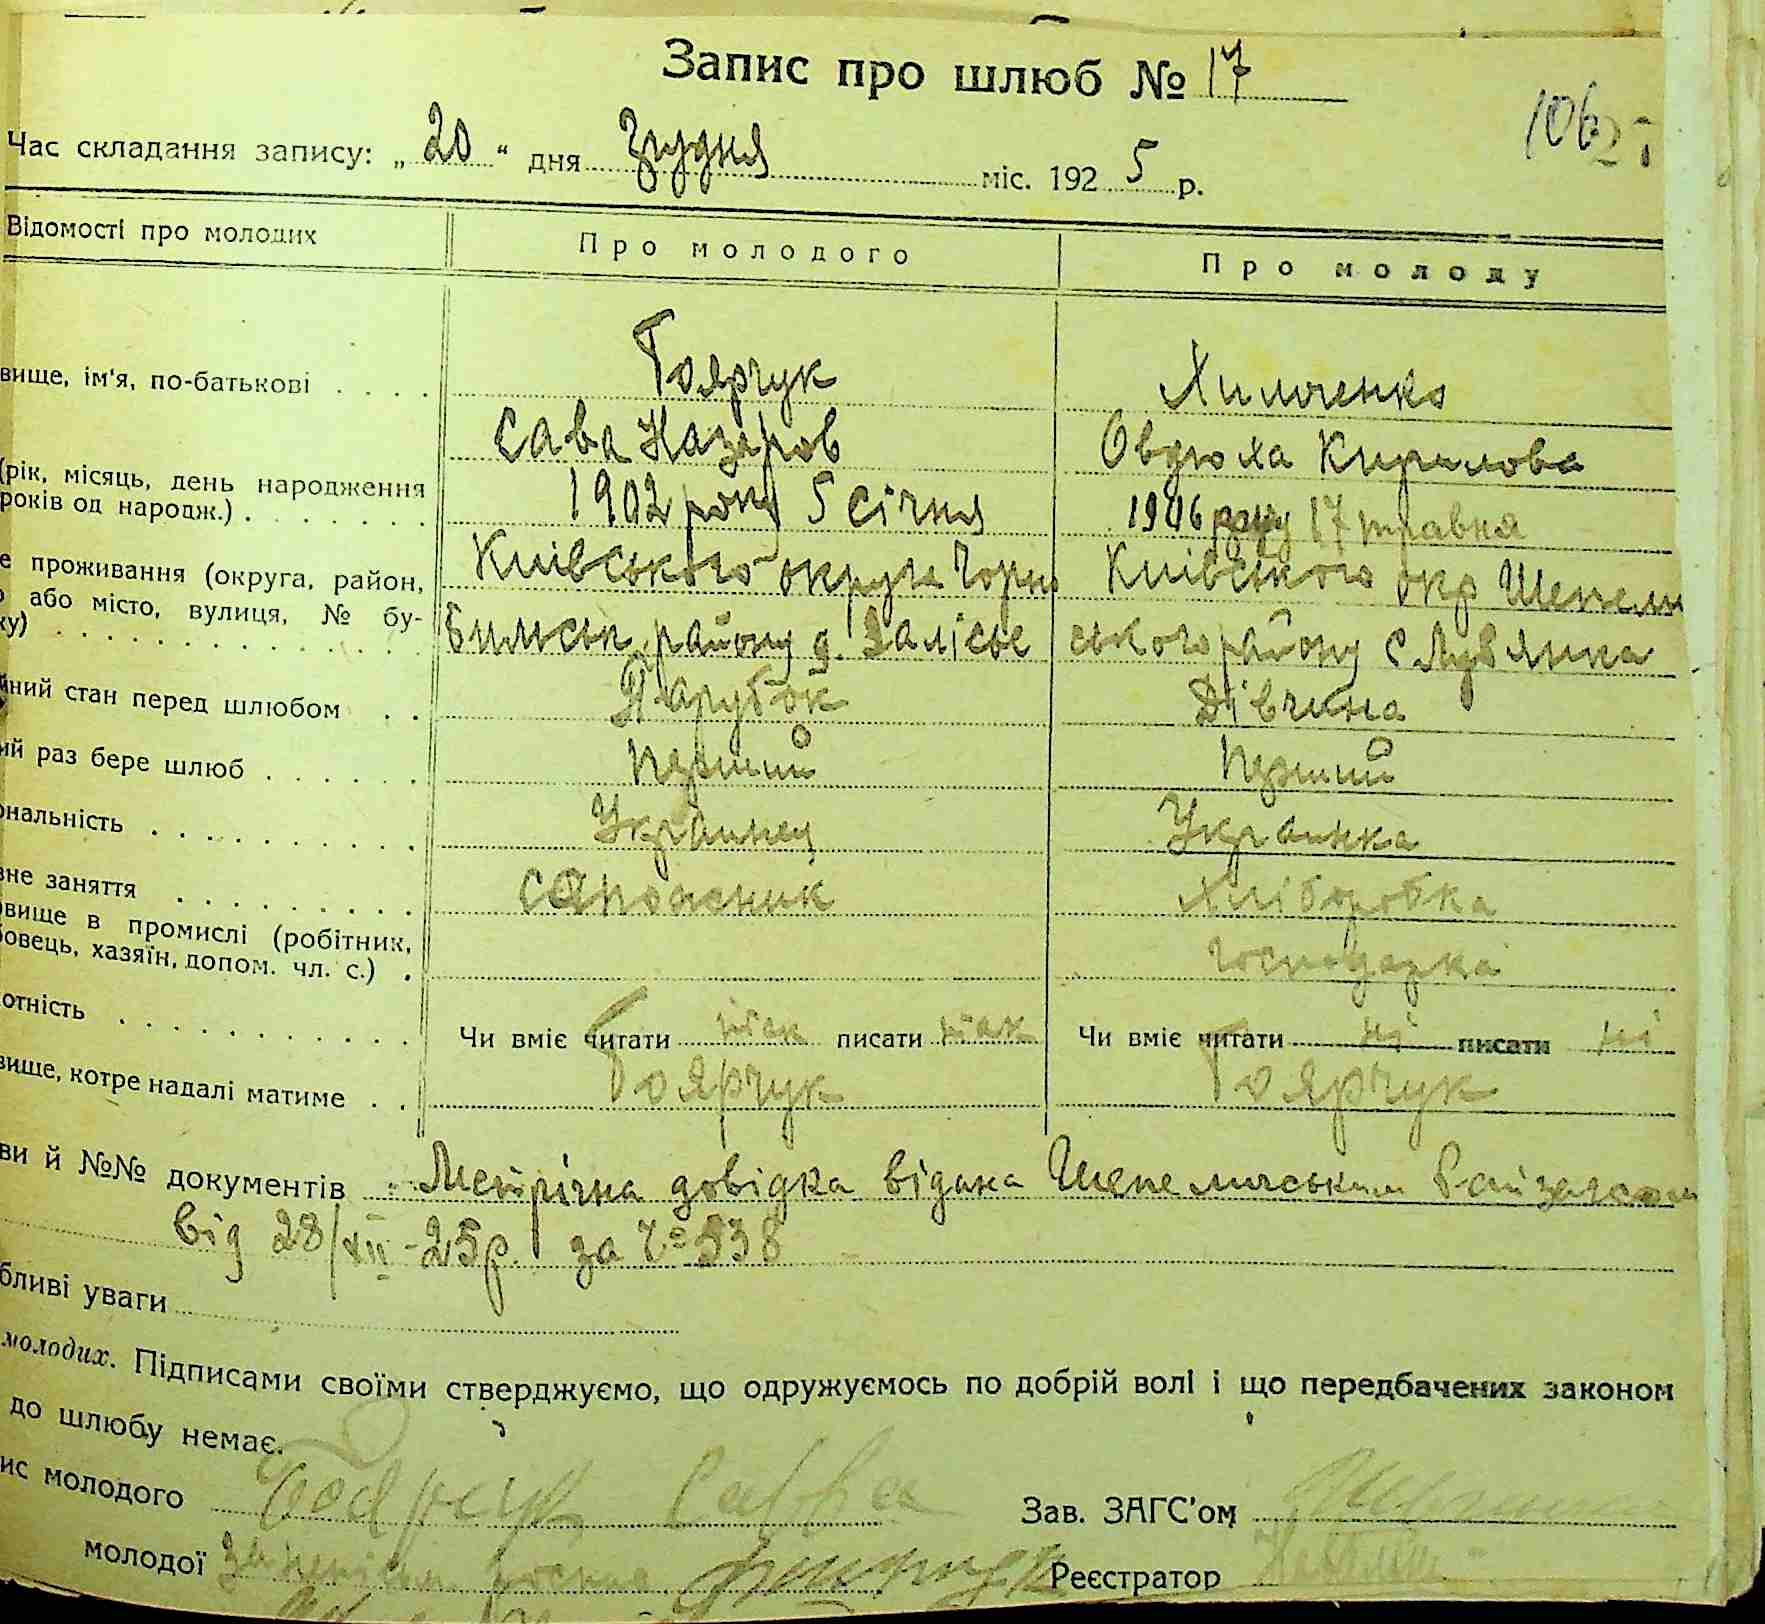 Запис про шлюб № 17
Час складання запису: „ 20 “ дня Згудня міс. 192 5 р.
Відомості про молодих Про молодого Про молоду
вище, ім'я, по-батькові Боярчук Химоченко
Сава Назаров Овдюха Кирилова
(рік, місяць, день народження
років од народж.) 1902 року 5 січня 1906 року 17 травня
е проживання (округа, район, Киівського округа Чорно Киівського окр Шепели
або місто, вулиця, № бу-
ку) Бильськ району д. Залісье ського району с Лубянка
йний стан перед шлюбом Парубок Дівчина
ий раз бере шлюб перший перший
ональність Украинец Украинка
вне заняття Хліборобка
вище в промислі (робітник,
бовець, хазяїн, допом. чл. с.) господарка
отність Чи вміє читати так писати так Чи вміє читати ні писати ні
вище, котре надалі матиме Боярчук Боярчук
ви й №№ документів Метрічна довідка відана Шепеличським Райзагсом
від 28/XII-25р. за Чо 538
бливі уваги
молодих. Підписами своїми стверджуємо, що одружуємось по добрій волі і що передбачених законом
до шлюбу немає.
ис молодого Боярчук Савва Зав. ЗАГС'ом
молодої Реєстратор